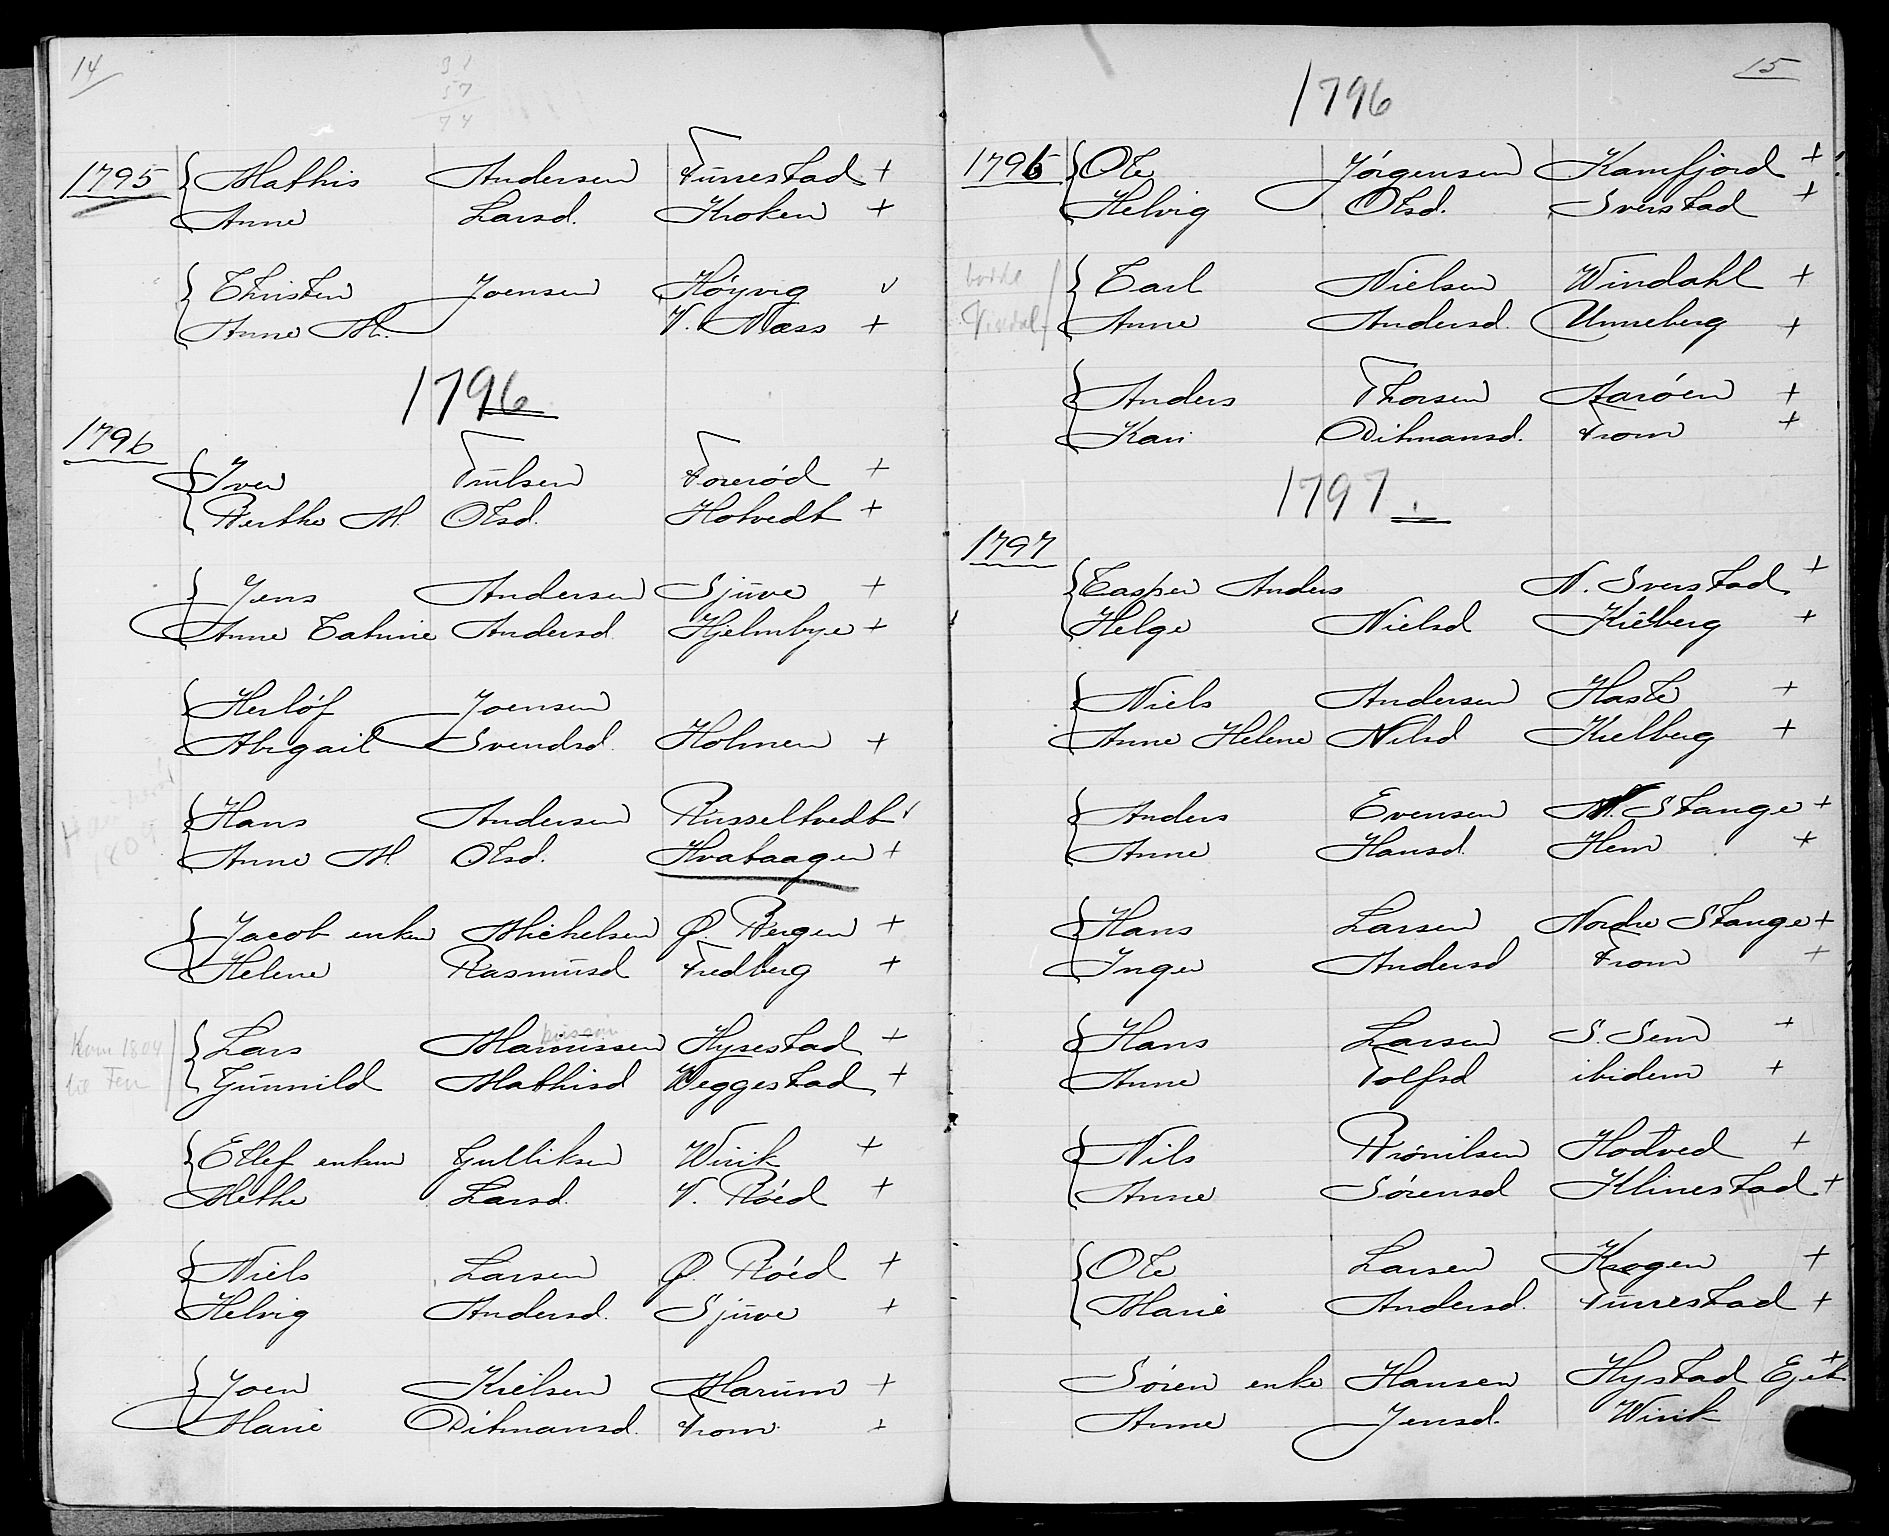 14
91
57
74
1795 Mathis Andersen Furrestad +
Anne Larsd. Kroken +
Christen Joensen Höyvig v
Anne M. V. Næss +
1796
1796
Iver Trulsen Forerød +
Berthe M. Olsd. Hotvedt +
Jens Andersen Sjuve +
Anne Catrine Andersd. Hjelmbye +
Herlöf Joensen
Abigail Svendsd. Holmen +
Hans Andersen Russeltvedt v
Anne M. Olsd. Hvataagen +
1809
Jacob enkem Michelsen Ø. Bergen +
Helene Rasmusd Fredberg +
Kom 1804 Lars Marcussen Hysestad +
til Fen Gunnild Mathisd Weggestad +
Etlef enkem Gulliksen Wirik +
Methe Larsd. V. Röed +
Niels Larsen Ø. Röed +
Helvig Andersd. Sjuve +
Joen Kielsen Marum +
Marie Ditmansd. From +
15
1796
1796 Ole Jörgensen Kamfjord +
Helvig Olsd. Sverstad +
Carl Nielsen Windahl +
Vindal Anne Andersd. Unneberg +
Anders Thorsen Aaröen +
Kari Ditmansd. From +
1797.
1797
Casper Anders N. Sverstad +
Helge Nielsd Kielberg +
Niels Andersen Hasle +
Anne Helene Nilsd Kielberg +
Anders Evensen N. Stange +
Anne Hansd. Hem +
Hans Larsen Nordre Stange +
Inger Andersd From +
Hans Larsen S. Sem +
Anne Tolfsd ibidem +
Nils Brönilsen Hodved +
Anne Sörensd Klinestad +
Ole Larsen Krogen +
Marie Andersd. Furrestad +
Sören enke Hansen Hystad Ejet +
Anne Jensd. Wirik